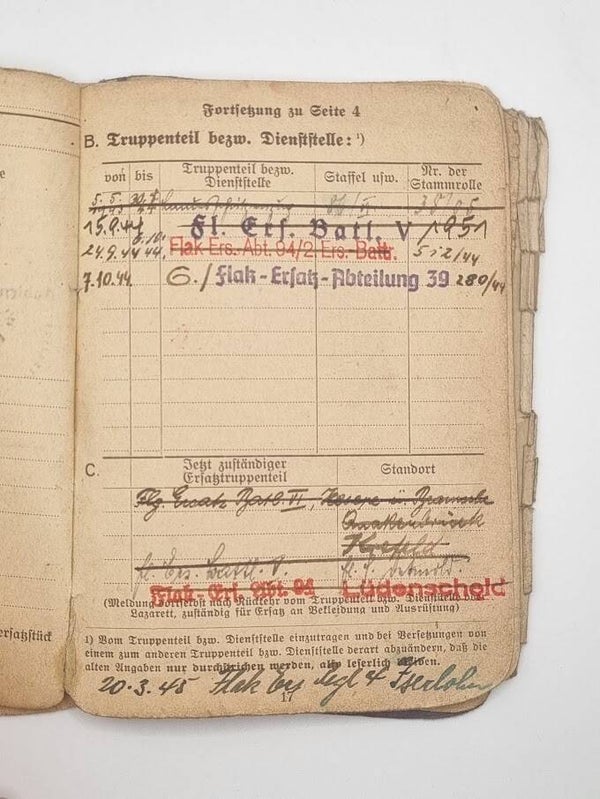 Fortsetzung zu Seite 4
B. Truppenteil bezw. Dienststelle: ¹)
von bis Truppenteil bezw. Dienststelle Staffel usw. Nr. der Stammrolle
5.5.
15.9.44 Fl. Ers. Batl. V 1951
24.9.44 6.10.44. Flak-Ers. Abt. 94/2. Ers.-Batt. 512/44
7.10.44. 6./ Flak-Ersatz-Abteilung 39 280/44
C. Jetzt zuständiger Ersatztruppenteil Standort
Flg. Ersatz Batl. VI, in Bramsche
Quakenbrück
Krefeld
fl. Ers. Battl. V. Detmold
Flak-Ers. Abt. 94 Lüdenscheid
(Meldung dortselbst nach Rückkehr vom Truppenteil bzw. Dienststelle
Lazarett, zuständig für Ersatz an Bekleidung und Ausrüstung)
1) Vom Truppenteil bzw. Dienststelle einzutragen und bei Versetzungen von
einem zum anderen Truppenteil bzw. Dienststelle derart abzuändern, daß die
alten Angaben nur durchstrichen werden, also leserlich bleiben.
20.3.45 Flak 4 Iserlohn
17
ersatzstück